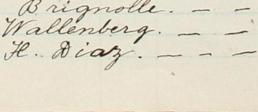 Brignolle. — —
Wallenberg. — —
H. Diaz. — — —